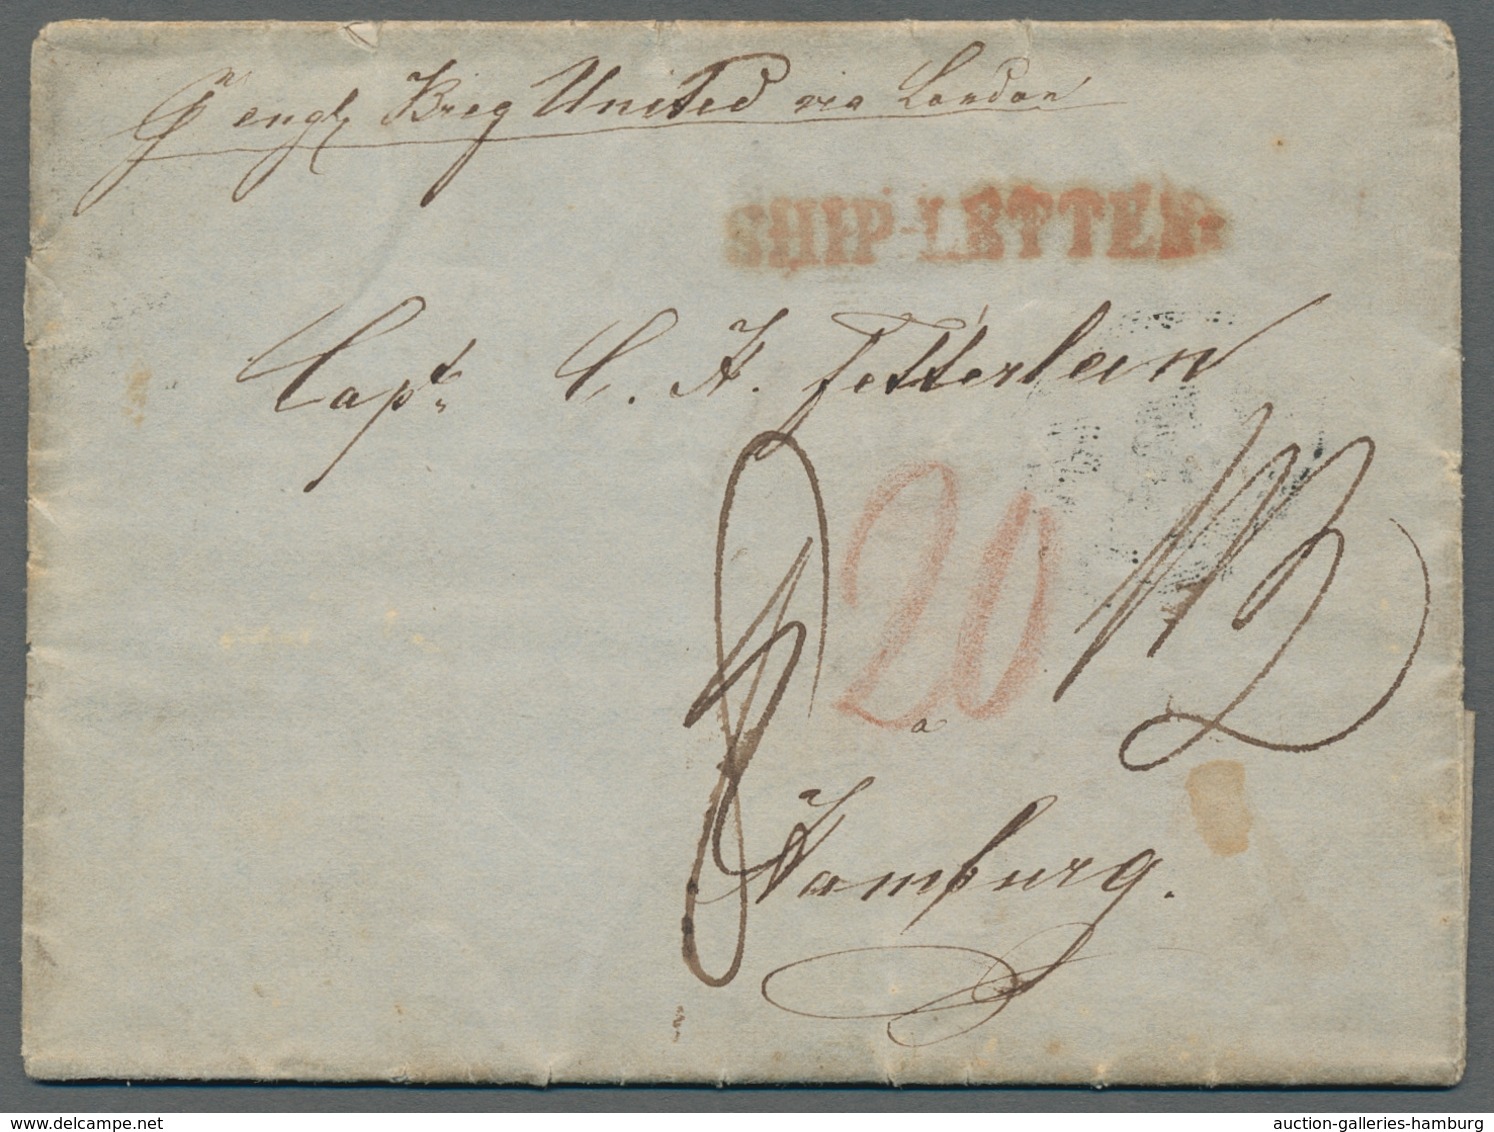 pr engl. Brig United via London
SHIP-LETTER
Capt. C. H. Fetterlein
20
a
Hamburg.
auction-galleries-hamburg